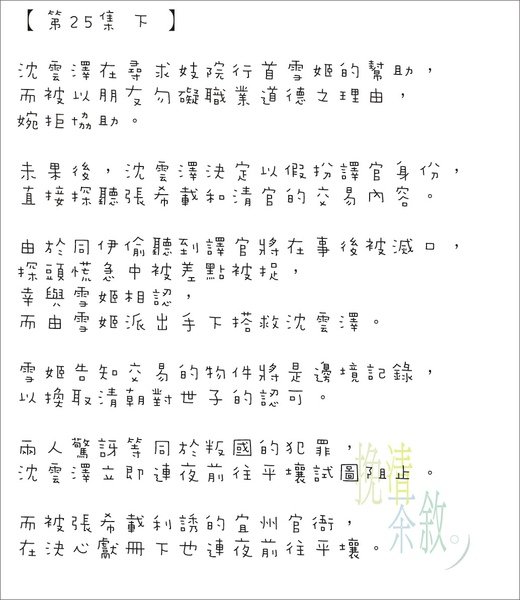 【 第25集 下 】
沈雲澤在尋求妓院行首雪姬的幫助，
而被以朋友勿礙職業道德之理由，
婉拒協助。
未果後，沈雲澤決定以假扮譯官身份，
直接探聽張希載和清官的交易內容。
由於同伊偷聽到譯官將在事後被滅口，
探頭慌急中被差點被捉，
幸與雪姬相認，
而由雪姬派出手下搭救沈雲澤。
雪姬告知交易的物件將是邊境記錄，
以換取清朝對世子的認可。
兩人驚訝等同於叛國的犯罪，
沈雲澤立即連夜前往平壤試圖阻止。
而被張希載利誘的宜州官衙，
在決心獻冊下也連夜前往平壤。
挽清
茶敘。